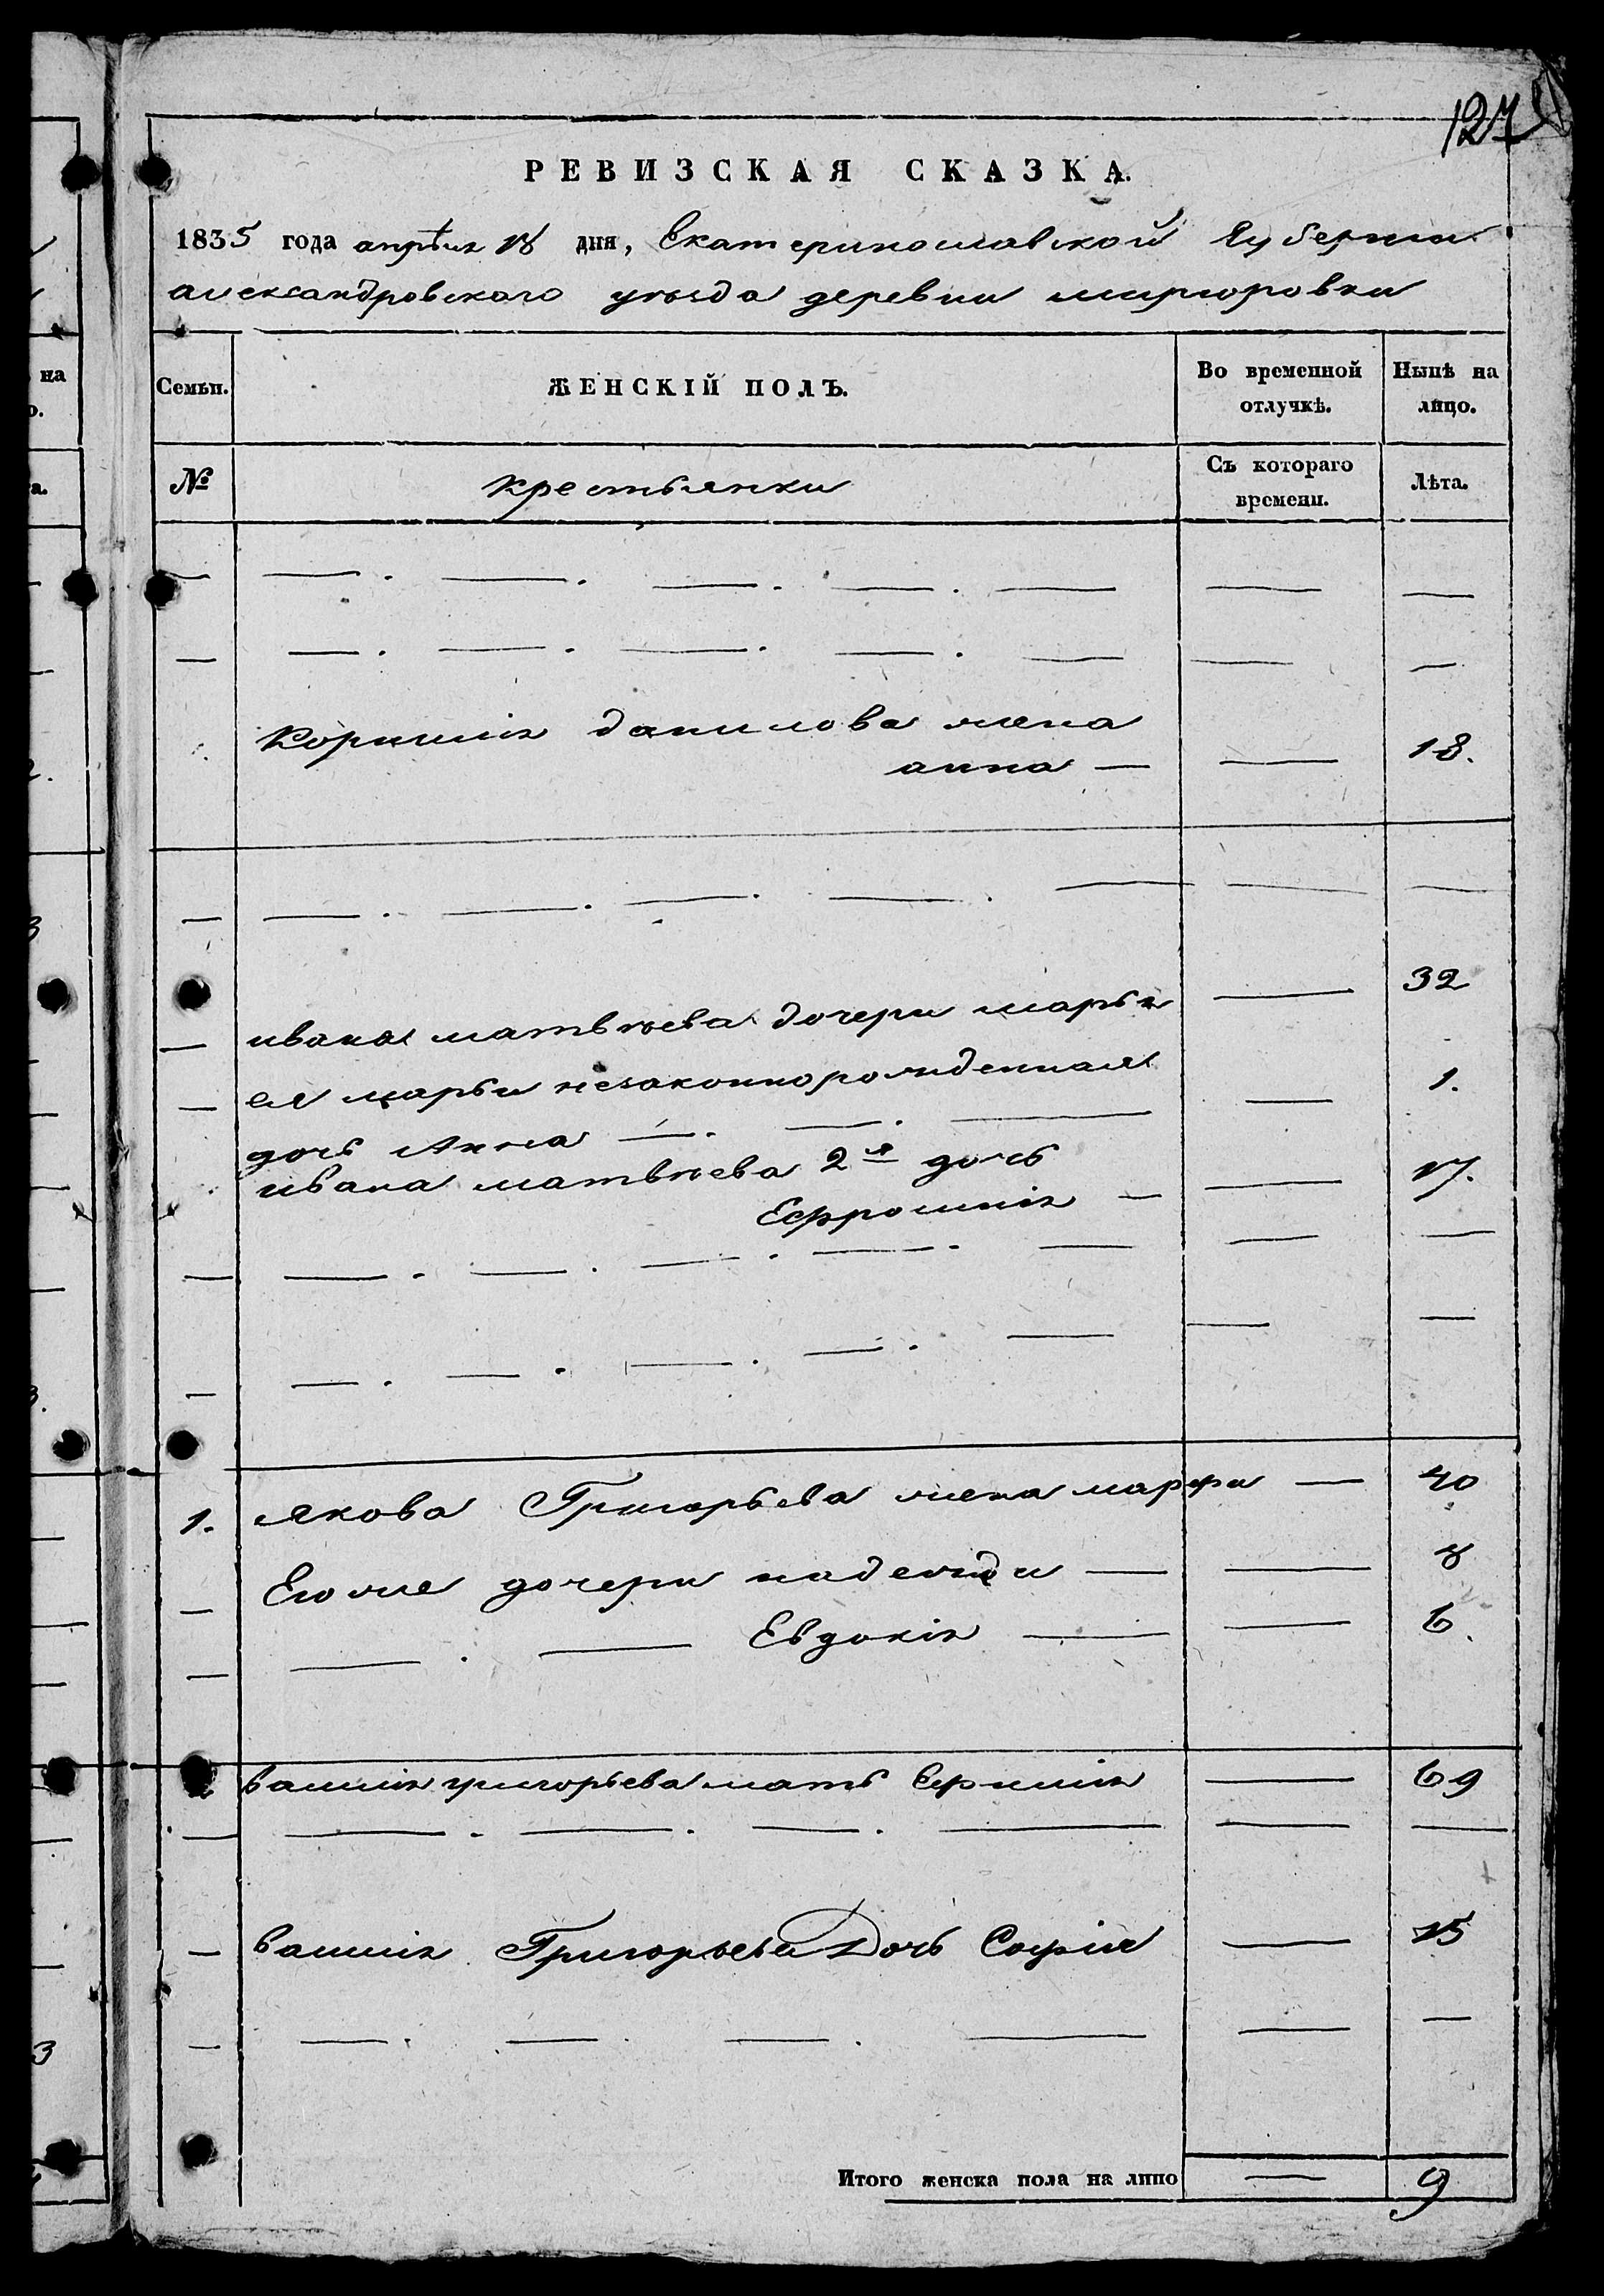 127
РЕВИЗСКАЯ СКАЗКА.
1835 года апрѣля 18 дня, Екатеринославской Губернии
александровского уѣзда деревни
Семьи. ЖЕНСКІЙ ПОЛЪ. Во временной отлучкѣ. Нынѣ на лицо.
№ крестьянки Съ котораго времени. Лѣта.
— — . — . — . — . — — —
— — . — . — . — . — — —
Корнилія данилова жена
анна — — 18.
— — . — . — . — . — — —
— ивана матвѣева дочери марья — 32
— ея марьи незаконнорожденная — 1.
дочь Анна — . — . —
ивана матвѣева 2я дочь
Ефросинія — — 17.
— — . — . — . — . — — —
— — . — . — . — . — — —
1. якова Григорьева жена марфа — 40
— Его же дочери надежда — — 8
— — . — Евдокія — — 6.
2 василія григорьева мать — 69
— — . — . — . — — —
— василія Григорьева Дочь Софія — 15
— — . — . — . — — —
Итого женска пола на лицо — 9